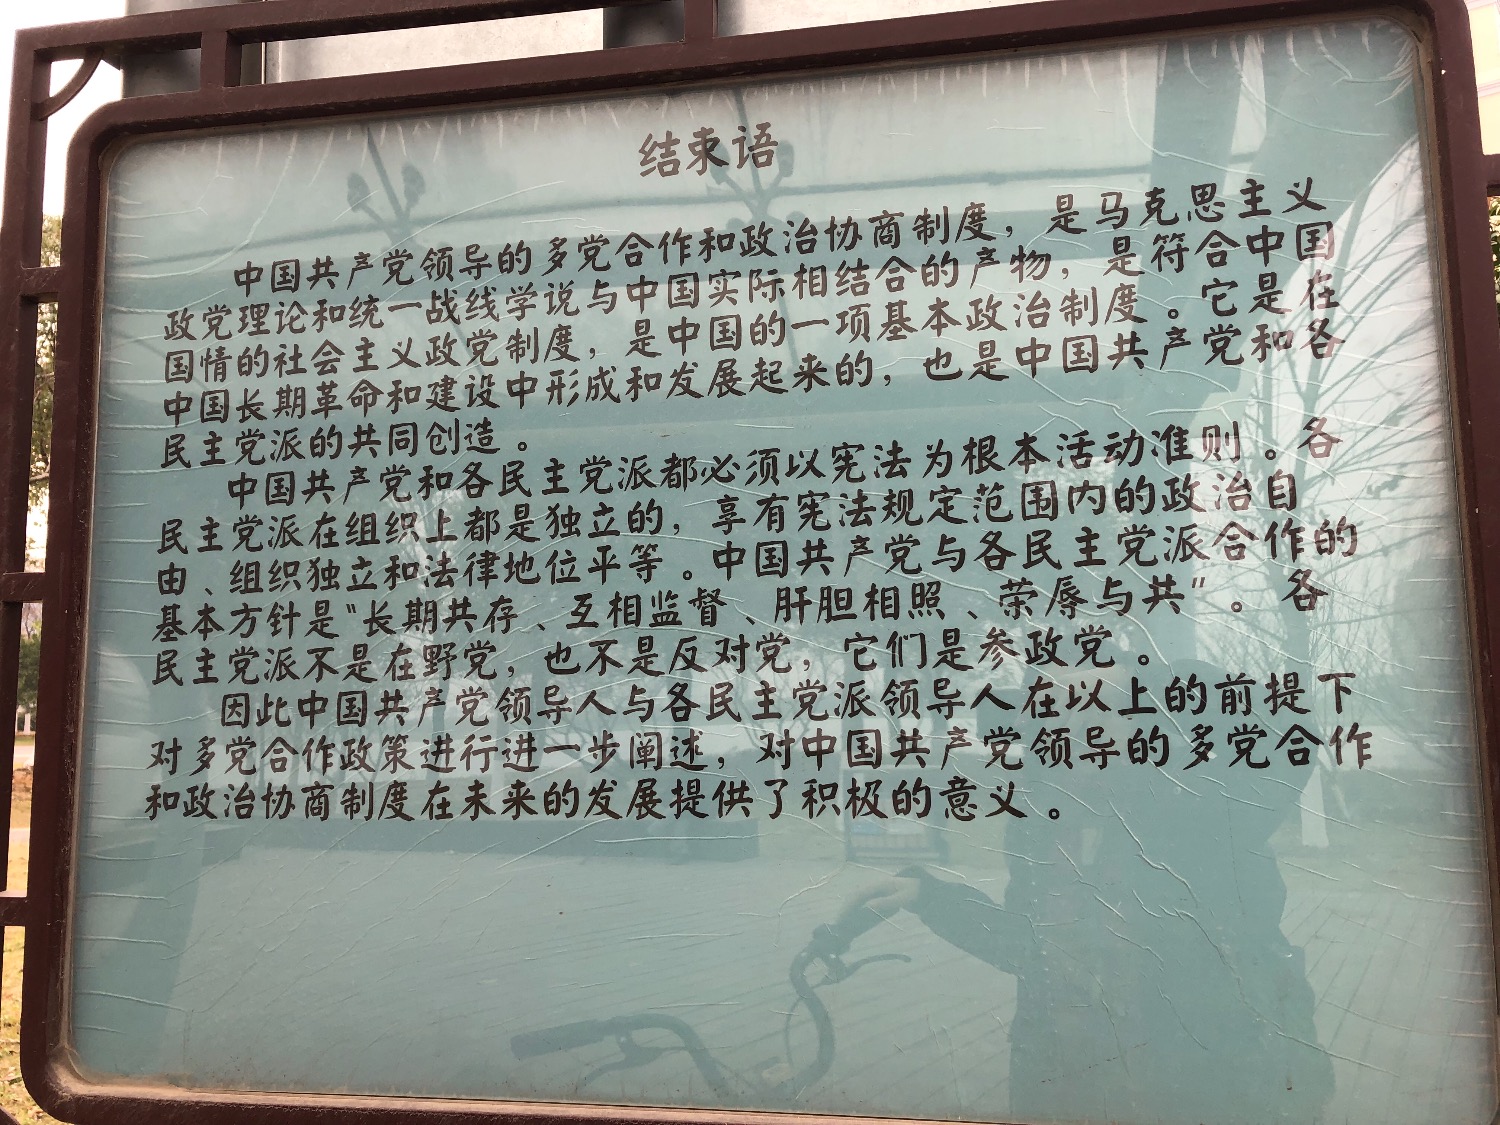 结束语
中国共产党领导的多党合作和政治协商制度，是马克思主义
政党理论和统一战线学说与中国实际相结合的产物，是符合中国
国情的社会主义政党制度，是中国的一项基本政治制度。它是在
中国长期革命和建设中形成和发展起来的，也是中国共产党和各
民主党派的共同创造。
中国共产党和各民主党派都必须以宪法为根本活动准则。各
民主党派在组织上都是独立的，享有宪法规定范围内的政治自
由、组织独立和法律地位平等。中国共产党与各民主党派合作的
基本方针是“长期共存、互相监督、肝胆相照、荣辱与共”。各
民主党派不是在野党，也不是反对党，它们是参政党。
因此中国共产党领导人与各民主党派领导人在以上的前提下
对多党合作政策进行进一步阐述，对中国共产党领导的多党合作
和政治协商制度在未来的发展提供了积极的意义。